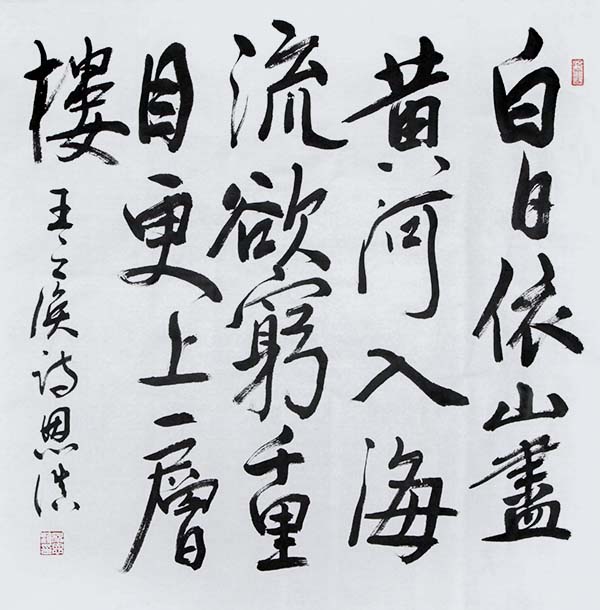 白日依山盡
黄河入海
流欲窮千里
目更上一層
樓
王之涣诗恩